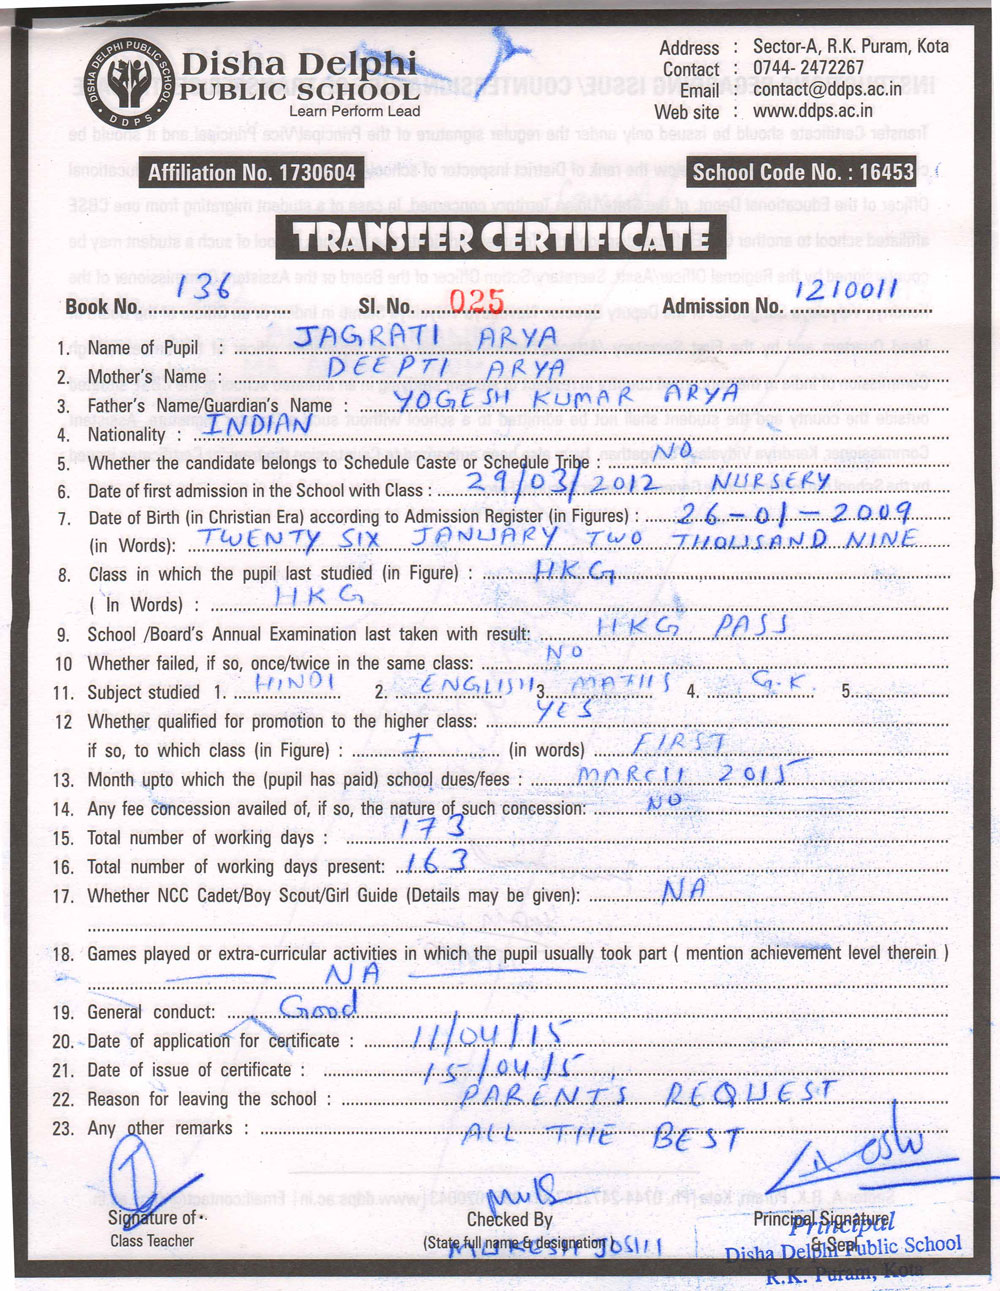 DISHA DELPHI PUBLIC SCHOOL
DDPS
Disha Delphi
PUBLIC SCHOOL
Learn Perform Lead
Address : Sector-A, R.K. Puram, Kota
Contact : 0744- 2472267
Email : contact@ddps.ac.in
Web site : www.ddps.ac.in
Affiliation No. 1730604
School Code No. : 16453
TRANSFER CERTIFICATE
Book No. 136 Sl. No. 025 Admission No. 1210011
1. Name of Pupil : JAGRATI ARYA
2. Mother's Name : DEEPTI ARYA
3. Father's Name/Guardian's Name : YOGESH KUMAR ARYA
4. Nationality : INDIAN
5. Whether the candidate belongs to Schedule Caste or Schedule Tribe : NO
6. Date of first admission in the School with Class : 29/03/2012 NURSERY
7. Date of Birth (in Christian Era) according to Admission Register (in Figures) : 26-01-2009
(in Words): TWENTY SIX JANUARY TWO THOUSAND NINE
8. Class in which the pupil last studied (in Figure) : HKG
( In Words) : HKG
9. School /Board's Annual Examination last taken with result: HKG PASS
10 Whether failed, if so, once/twice in the same class: NO
11. Subject studied 1. HINDI 2. ENGLISH 3. MATHS 4. G.K. 5.
12 Whether qualified for promotion to the higher class: YES
if so, to which class (in Figure) : I (in words) FIRST
13. Month upto which the (pupil has paid) school dues/fees : MARCH 2015
14. Any fee concession availed of, if so, the nature of such concession: NO
15. Total number of working days : 173
16. Total number of working days present: 163
17. Whether NCC Cadet/Boy Scout/Girl Guide (Details may be given): NA
18. Games played or extra-curricular activities in which the pupil usually took part ( mention achievement level therein )
NA
19. General conduct: Good
20. Date of application for certificate : 11/04/15
21. Date of issue of certificate : 15/04/15
22. Reason for leaving the school : PARENT'S REQUEST
23. Any other remarks : ALL THE BEST
Signature of
Class Teacher
Checked By
(State full name & designation)
MUKESH JOSHI
Principal Signature
& Seal
Principal
Disha Delphi Public School
R.K. Puram, Kota